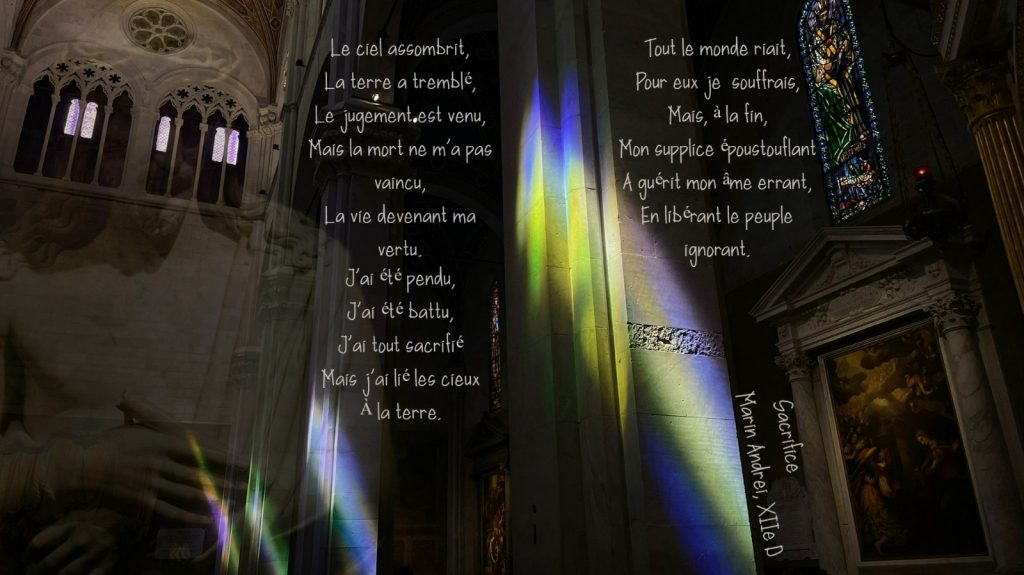 Le ciel assombrit,
La terre a tremblé,
Le jugement est venu,
Mais la mort ne m'a pas
vaincu,
La vie devenant ma
vertu.
J'ai été pendu,
J'ai été battu,
J'ai tout sacrifié
Mais j'ai lié les cieux
À la terre.
Tout le monde riait,
Pour eux je souffrais,
Mais, à la fin,
Mon supplice époustouflant
A guérit mon âme errant,
En libérant le peuple
ignorant.
Sacrifice
Marin Andrei, XIIe D